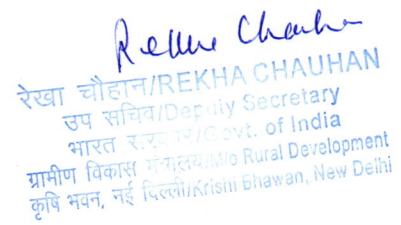 Rekha Chauhan
रेखा चौहान/REKHA CHAUHAN
उप सचिव/Deputy Secretary
भारत सरकार/Govt. of India
ग्रामीण विकास मंत्रालय/M/o Rural Development
कृषि भवन, नई दिल्ली/Krishi Bhawan, New Delhi